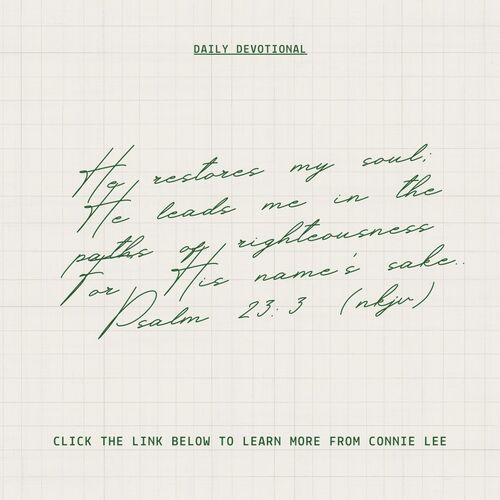 DAILY DEVOTIONAL
He restores my soul;
He leads me in the
paths of righteousness
For His name's sake..
Psalm 23:3 (nkjv)
CLICK THE LINK BELOW TO LEARN MORE FROM CONNIE LEE